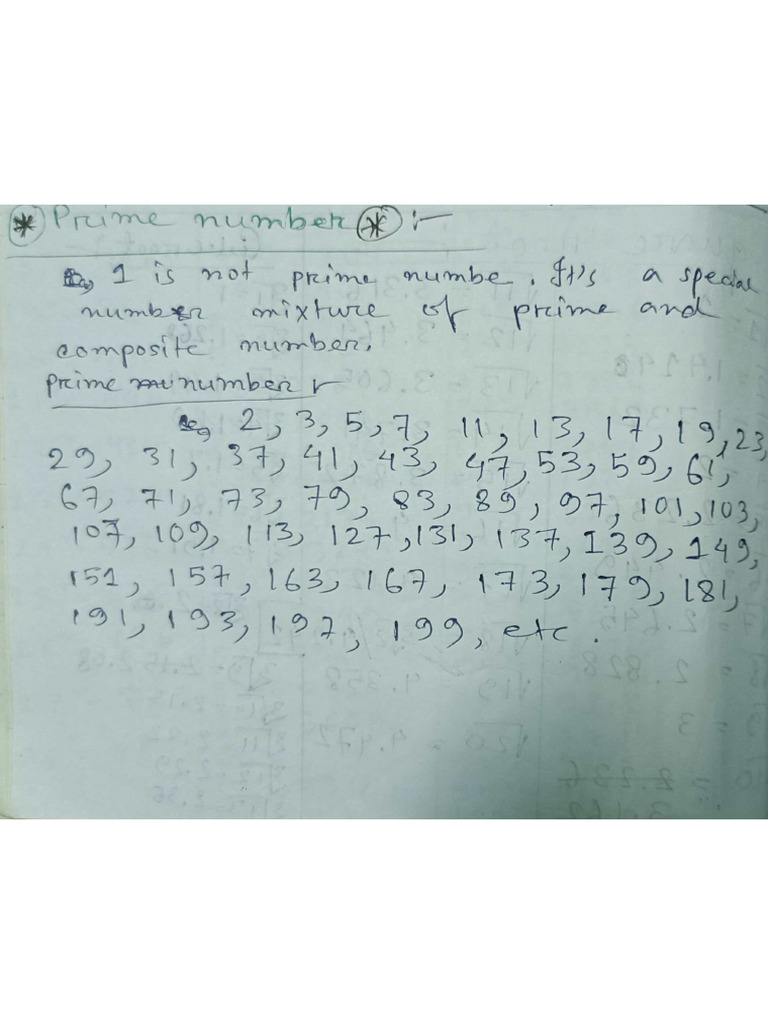 * Prime number * :-
1 is not prime numbe. It's a special
number mixture of prime and
composite number.
prime number
2, 3, 5, 7, 11, 13, 17, 19, 23,
29, 31, 37, 41, 43, 47, 53, 59, 61,
67, 71, 73, 79, 83, 89, 97, 101, 103,
107, 109, 113, 127, 131, 137, 139, 149,
151, 157, 163, 167, 173, 179, 181,
191, 193, 197, 199, etc.